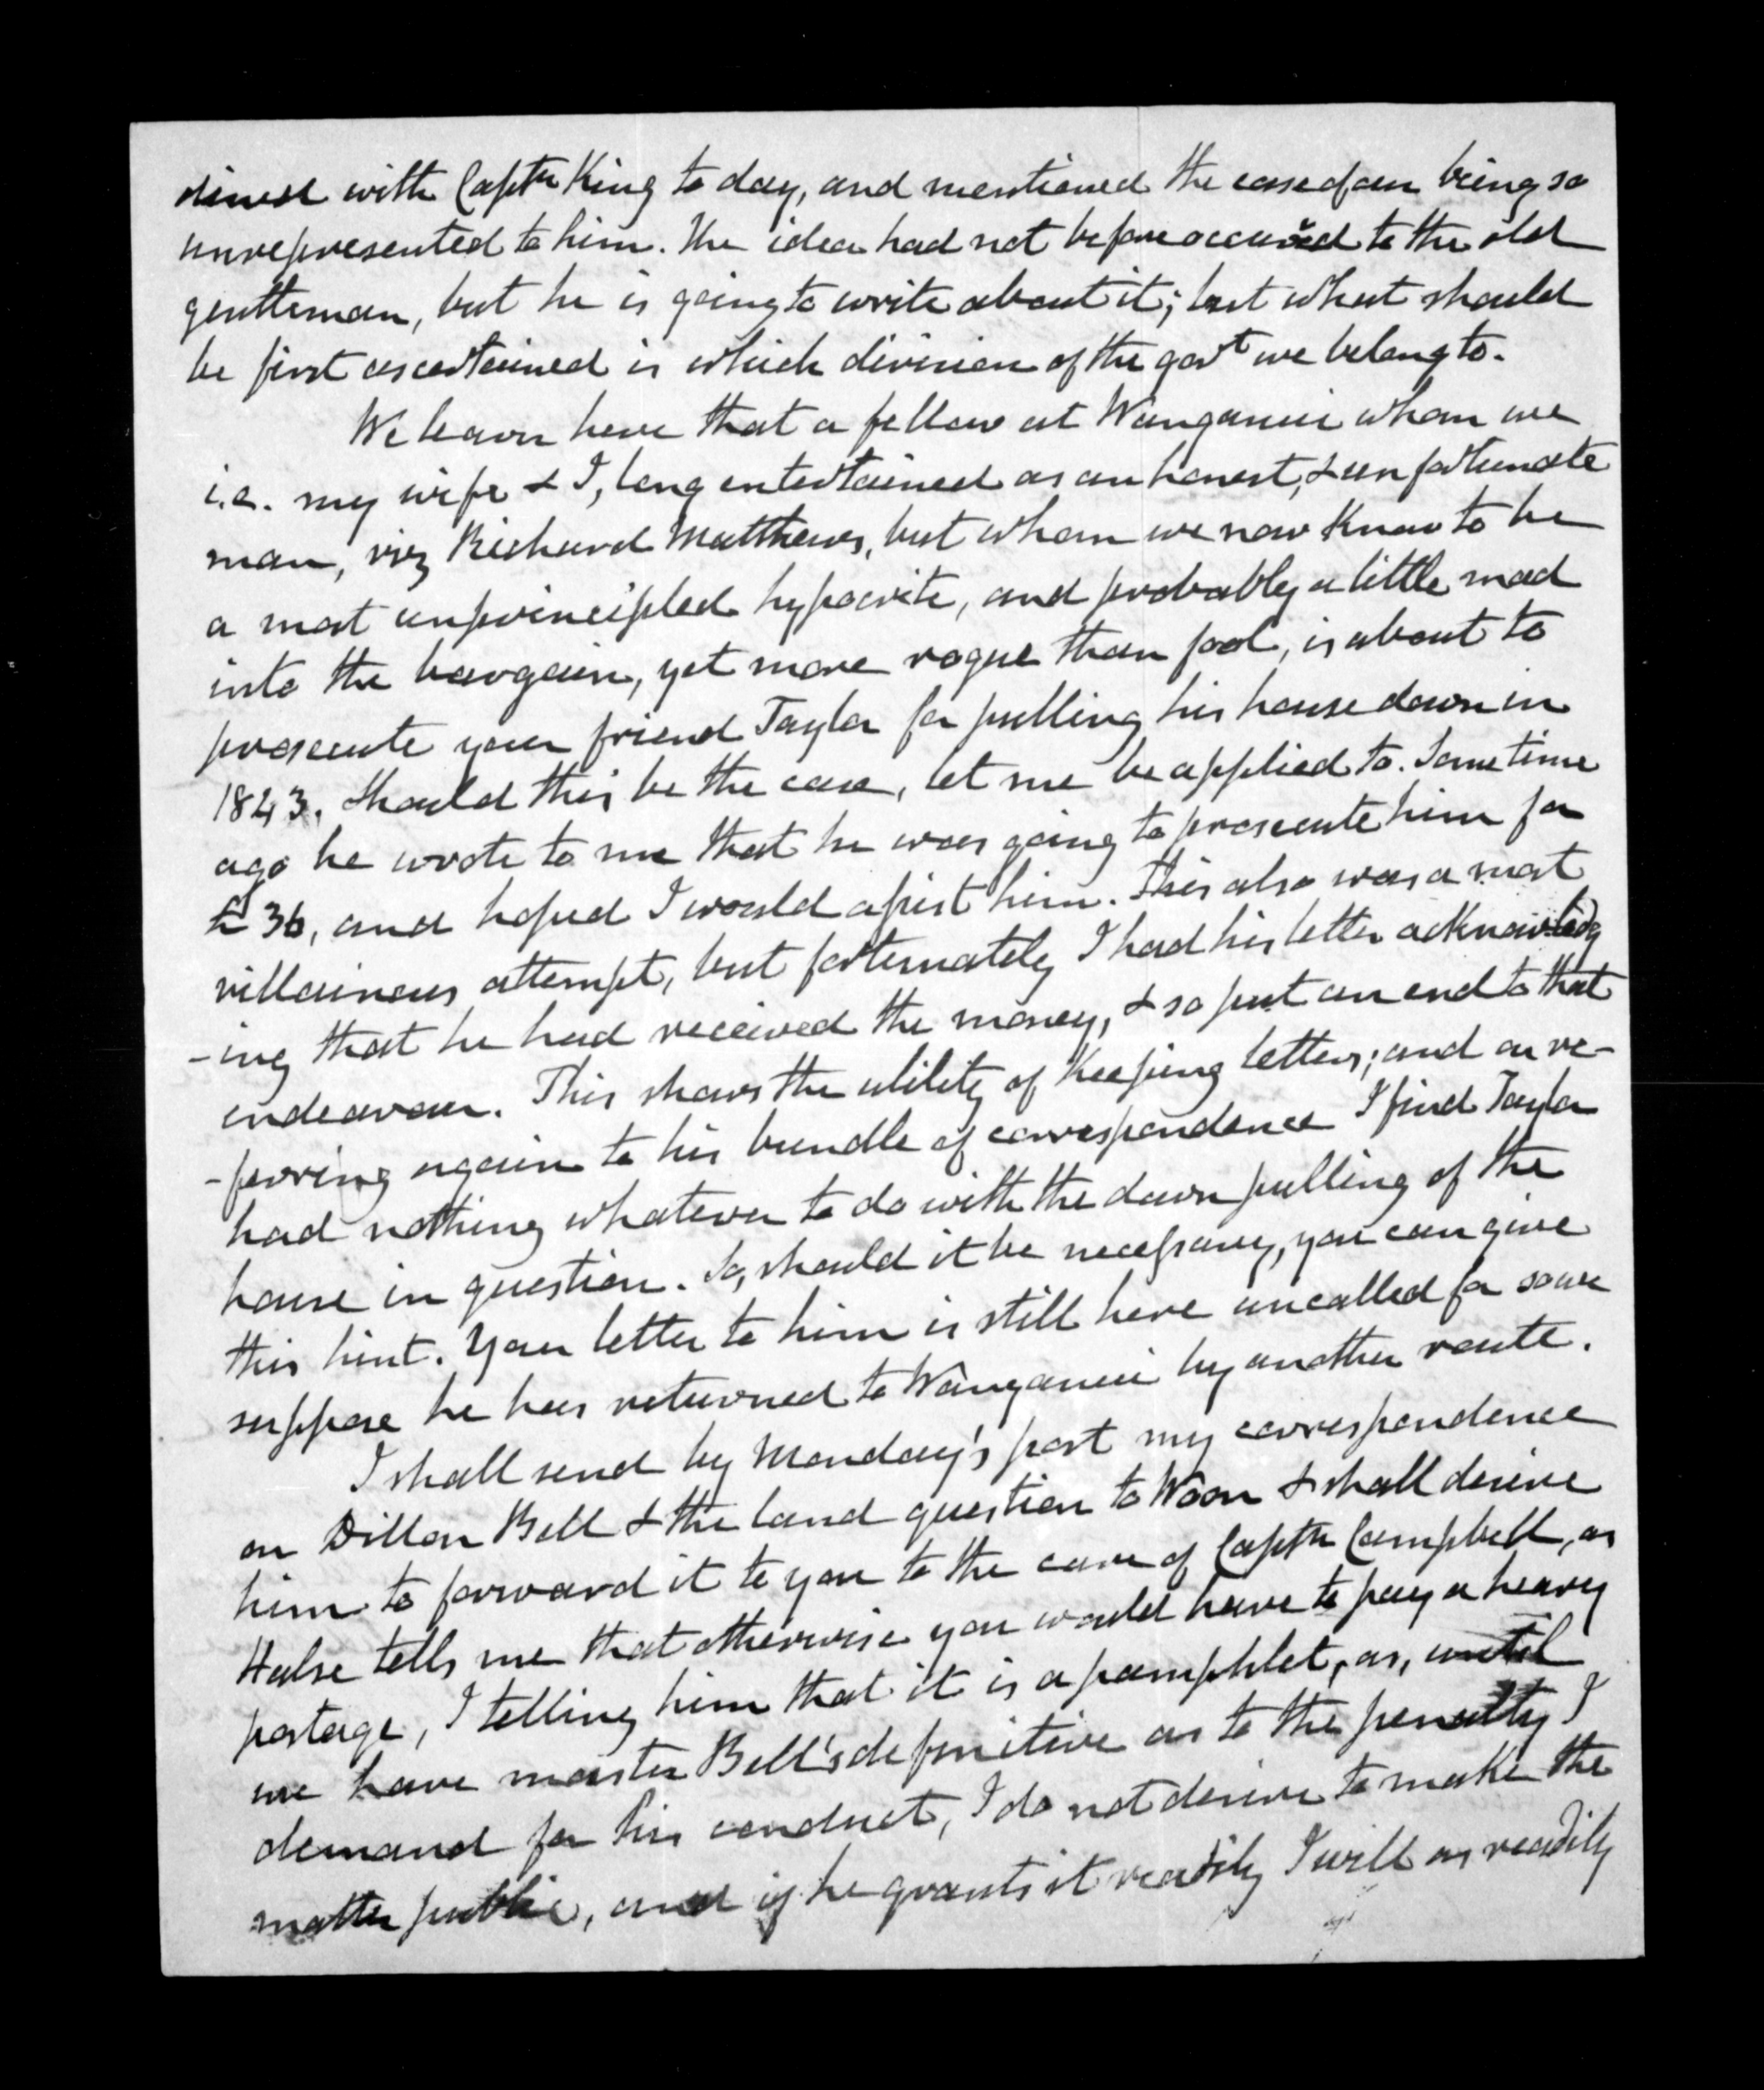 dined with Captn King to day, and mentioned the case of our being so
unrepresented to him. The idea had not before occurred to the old
gentleman, but he is going to write about it; but what should
be first ascertained is which division of the govt we belong to.
We learn here that a fellow at Wanganui whom we
i.e. my wife & I, long entertained as an honest, & unfortunate
man, viz Richard Matthews, but whom we now know to be
a most unprincipled hypocrite, and probably a little mad
into the bargain, yet more rogue than fool, is about to
prosecute your friend Taylor for pulling his house down in
1843. Should this be the case, let me be applied to. Some time
ago he wrote to me that he was going to prosecute him for
£36, and hoped I would assist him. This also was a most
villainous attempt, but fortunately I had his letter acknowledg
-ing that he had received the money, & so put an end to that
endeavour. This shows the utility of keeping letters; and on re-
-ferring again to his bundle of correspondence I find Taylor
had nothing whatever to do with the down pulling of the
house in question. So, should it be necessary, you can give
this hint. Your letter to him is still here uncalled for so we
suppose he has returned to Wanganui by another route.
I shall send by Monday's post my correspondence
on Dillon Bell & the land question to Woon & shall desire
him to forward it to you to the care of Captn Campbell, as
Halse tells me that otherwise you would have to pay a heavy
postage, I telling him that it is a pamphlet, as, until
we have master Bell's definitive as to the penalty I
demand for his conduct, I do not desire to make the
matter public, and if he grants it readily I will as readily